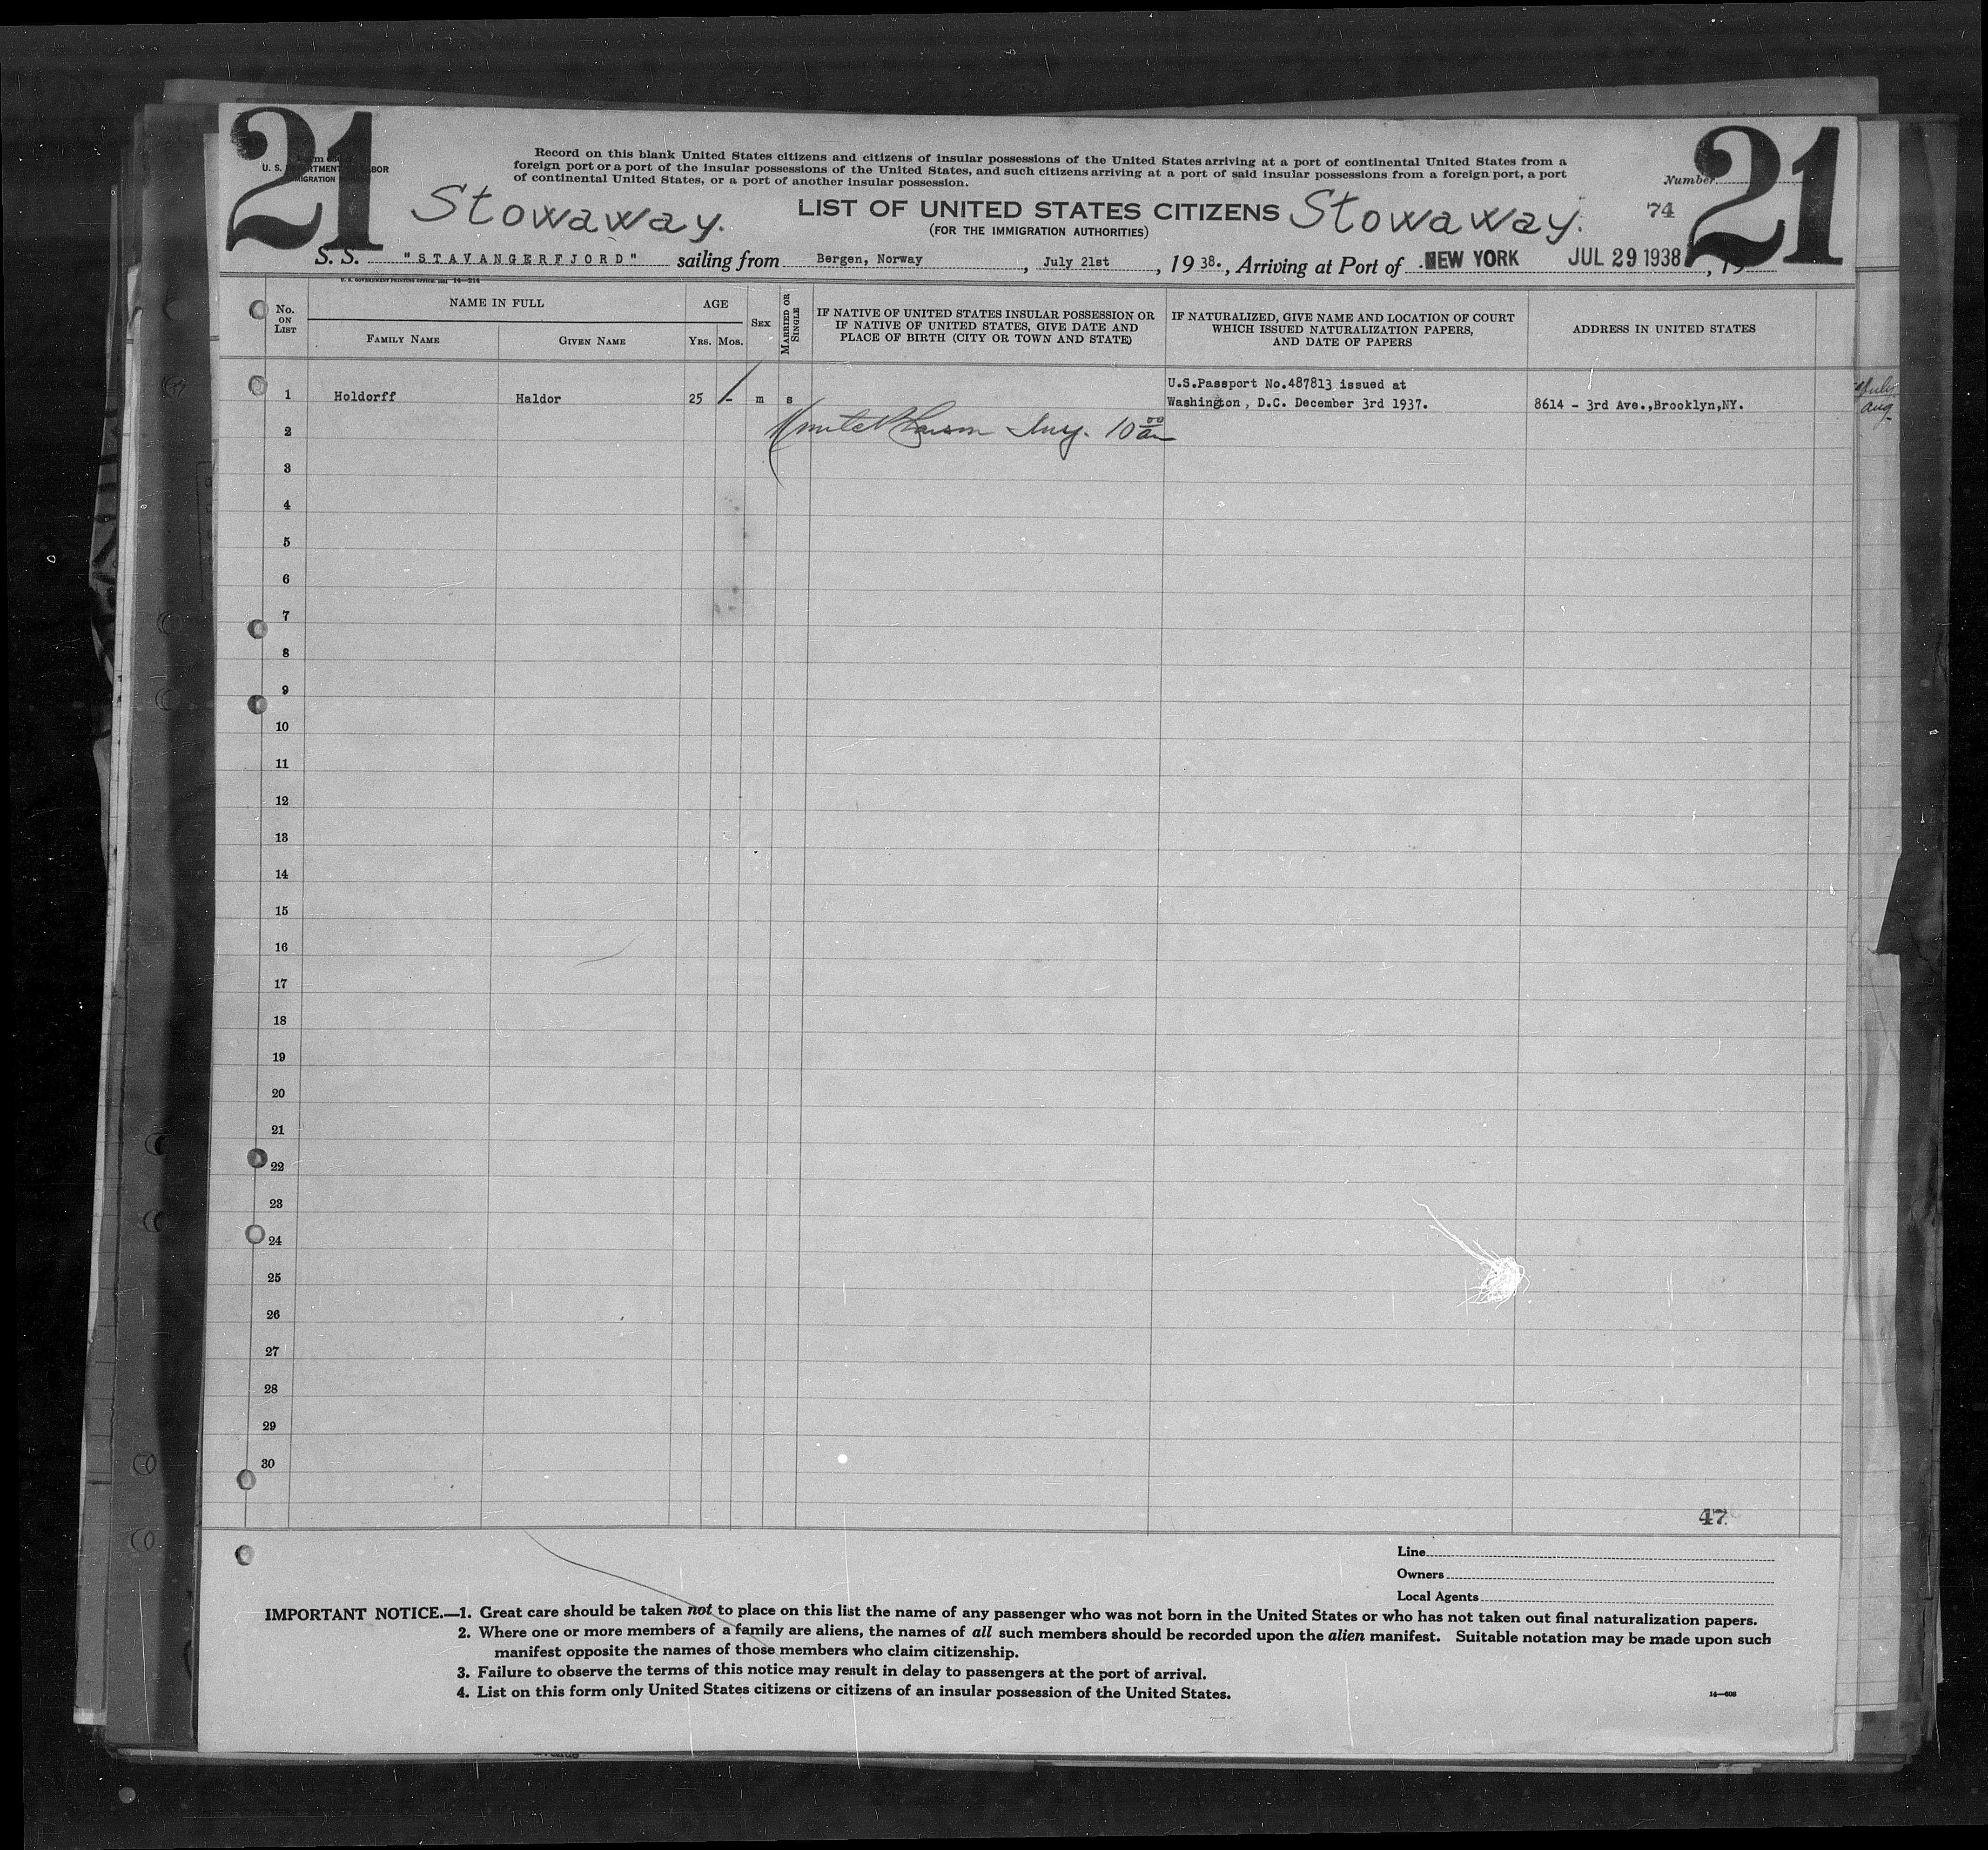 21
21
U. S. DEPARTMENT OF LABOR
IMMIGRATION
Record on this blank United States citizens and citizens of insular possessions of the United States arriving at a port of continental United States from a
foreign port or a port of the insular possessions of the United States, and such citizens arriving at a port of said insular possessions from a foreign port, a port
of continental United States, or a port of another insular possession.
Number
Stowaway. LIST OF UNITED STATES CITIZENS Stowaway. 74
(FOR THE IMMIGRATION AUTHORITIES)
S. S. "STAVANGERFJORD" sailing from Bergen, Norway, July 21st, 1938., Arriving at Port of NEW YORK JUL 29 1938, 19
U. S. GOVERNMENT PRINTING OFFICE: 1931 14—214
No. ON LIST
NAME IN FULL
FAMILY NAME
GIVEN NAME
AGE
YRS. MOS.
SEX
MARRIED OR SINGLE
IF NATIVE OF UNITED STATES INSULAR POSSESSION OR
IF NATIVE OF UNITED STATES, GIVE DATE AND
PLACE OF BIRTH (CITY OR TOWN AND STATE)
IF NATURALIZED, GIVE NAME AND LOCATION OF COURT
WHICH ISSUED NATURALIZATION PAPERS,
AND DATE OF PAPERS
ADDRESS IN UNITED STATES
U.S.Passport No.487813 issued at
1 Holdorff Haldor 25 - m s Washington, D.C. December 3rd 1937. 8614 - 3rd Ave.,Brooklyn,NY.
2 10 00 am
3
4
5
6
7
8
9
10
11
12
13
14
15
16
17
18
19
20
21
22
23
24
25
26
27
28
29
30
47
Line
Owners
Local Agents
IMPORTANT NOTICE.—1. Great care should be taken not to place on this list the name of any passenger who was not born in the United States or who has not taken out final naturalization papers.
2. Where one or more members of a family are aliens, the names of all such members should be recorded upon the alien manifest. Suitable notation may be made upon such
manifest opposite the names of those members who claim citizenship.
3. Failure to observe the terms of this notice may result in delay to passengers at the port of arrival.
4. List on this form only United States citizens or citizens of an insular possession of the United States.
14—608